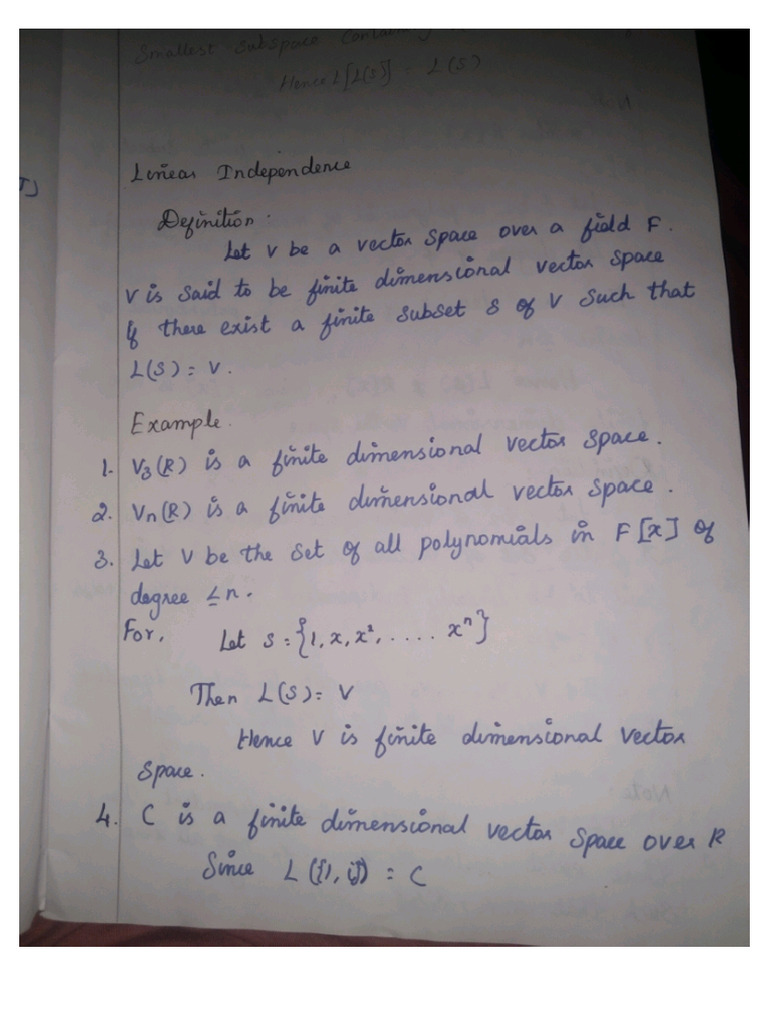 Smallest Subspace Containing
Hence L[L(S)] = L(S)
Linear Independence
Definition.
Let V be a vector space over a field F.
V is said to be finite dimensional vector space
if there exist a finite subset S of V such that
L(S) = V.
Example.
1. V₃(R) is a finite dimensional vector space.
2. Vn(R) is a finite dimensional vector space.
3. Let V be the set of all polynomials in F[x] of
degree ≤ n.
For, Let S = {1, x, x², .... xⁿ}
Then L(S) = V
Hence V is finite dimensional vector
space.
4. C is a finite dimensional vector space over R
Since L({1, i}) = C